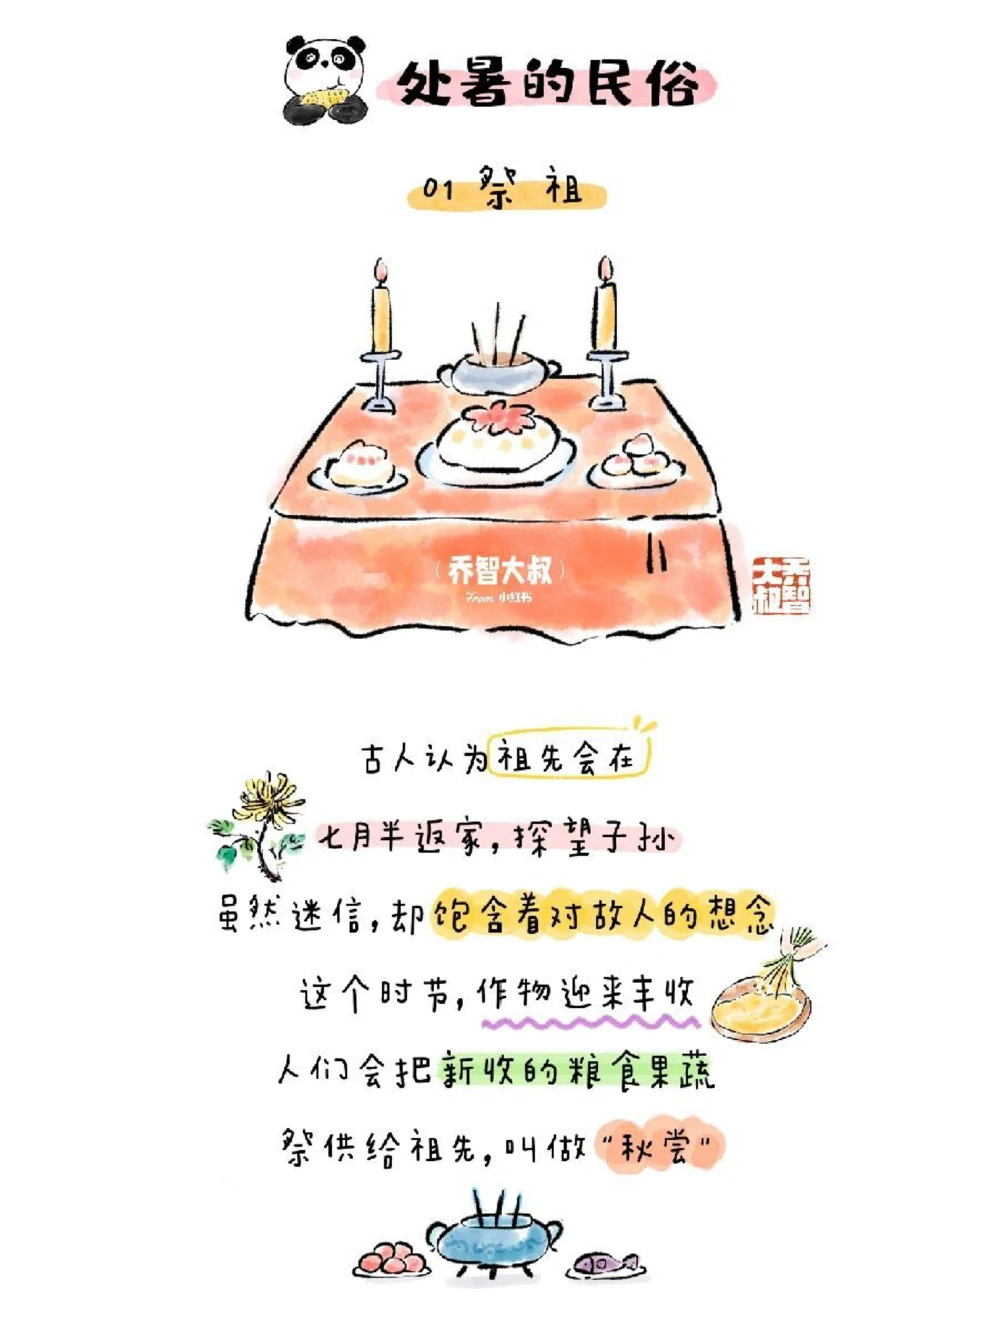 处暑的民俗
01 祭祖
(乔智大叔)
From 小红书
乔智大叔
古人认为祖先会在
七月半返家,探望子孙
虽然迷信,却饱含着对故人的想念
这个时节,作物迎来丰收
人们会把新收的粮食果蔬
祭供给祖先,叫做“秋尝”